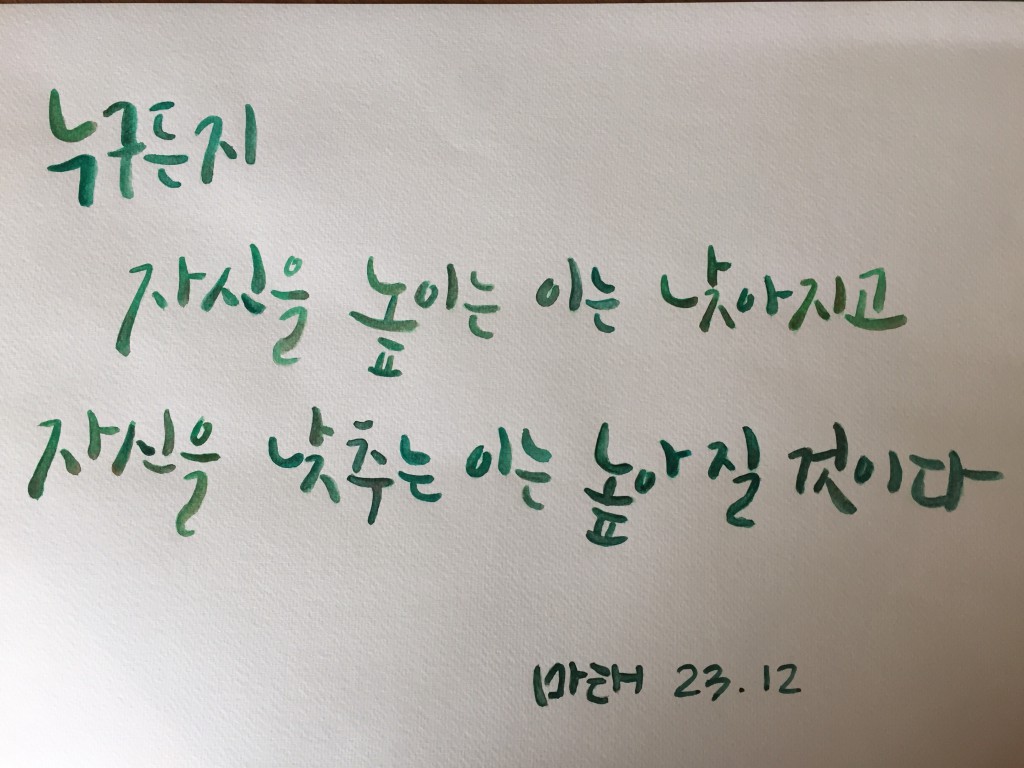 누구든지
자신을 높이는 이는 낮아지고
자신을 낮추는 이는 높아질 것이다
마태 23.12